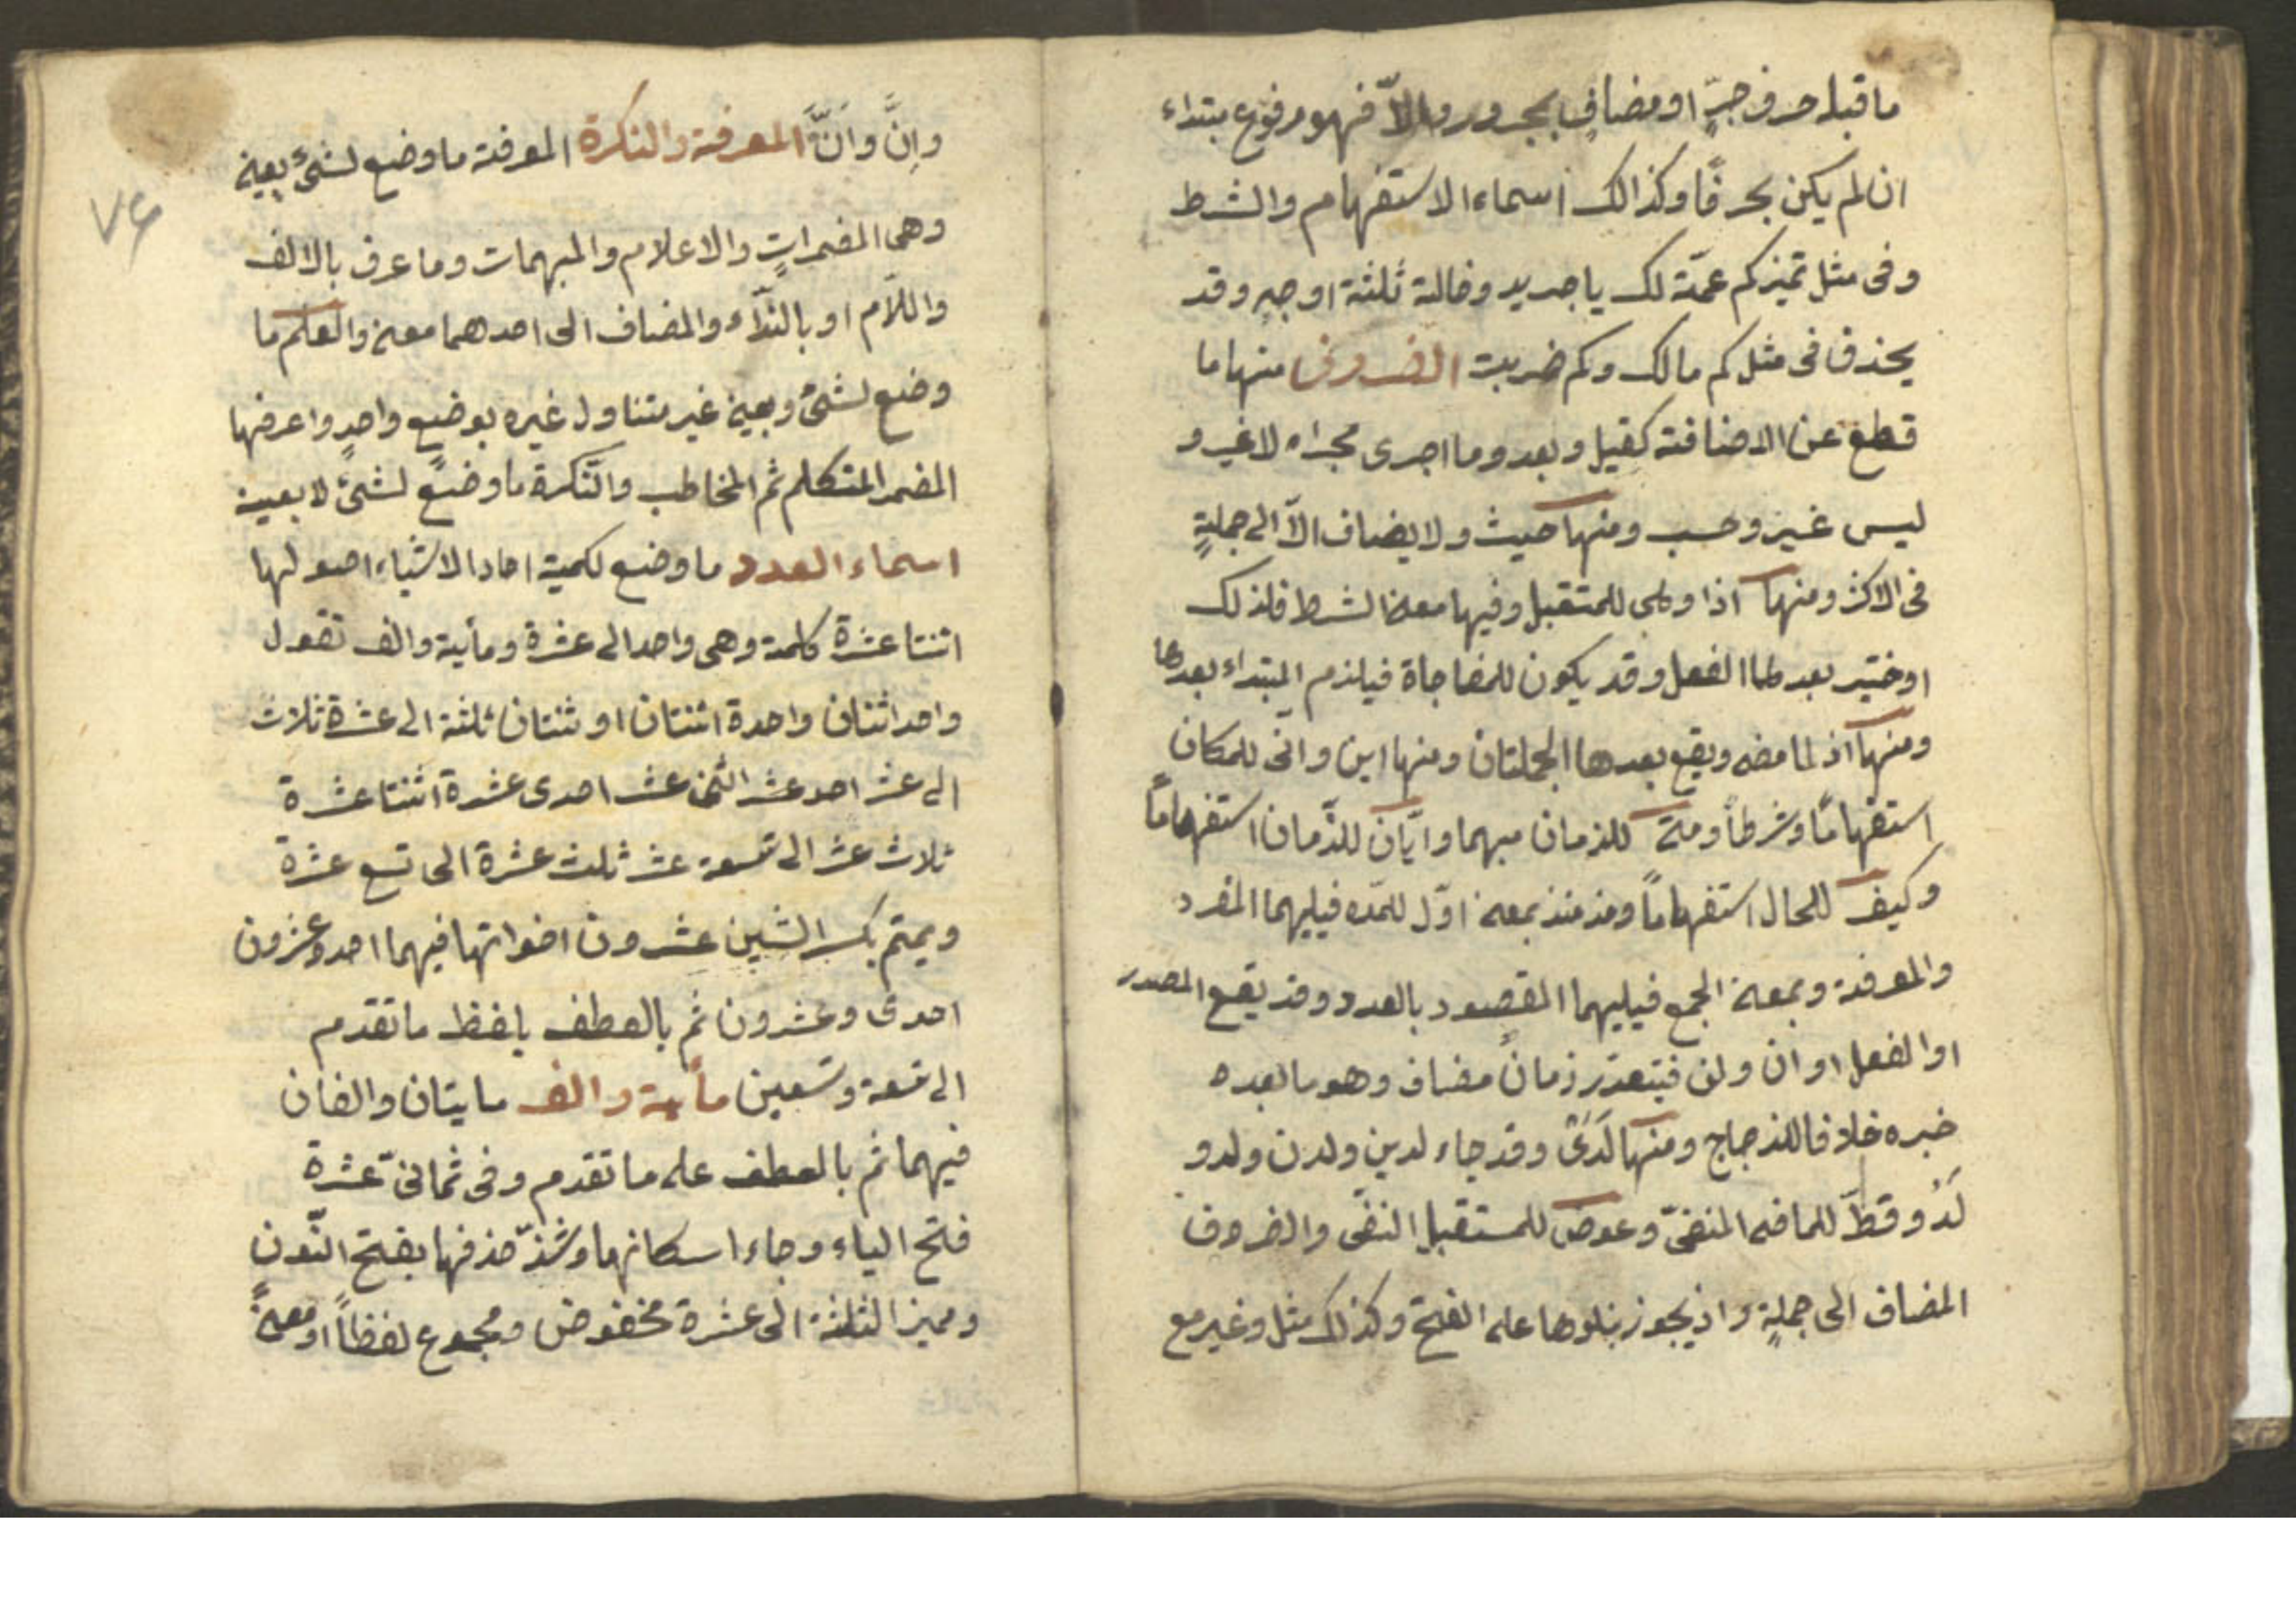 ما قبله حرف جرّ او مضاف بمجرور والّا فهو مرفوع مبتداء
ان لم يكن بحرفًا وكذالك اسماء الاستفهام والشرط
وفى مثل تميز كم عمّة لك يا جرير وخالة ثلثة اوجه وقد
يحذف فى مثل كم مالك وكم ضربت الضروف منها ما
قطع عن الاضافة كقبل وبعد وما اجرى مجراه لا غير و
ليس غير وحسب ومنها حيث ولا يضاف الّا الى جملةٍ
فى الاكثر ومنها اذا وهى للمتقبل وفيها معنى الشرط فلذلك
اوختير بعدها الفعل وقد يكون للمفاجاة فيلزم المبتداء بعدها
ومنها اذ لما مضى ويقع بعدها الجملتان ومنها اين وانّى للمكان
استفهامًا وشرطاً ومتى للزمان مبهما وايّان للزّمان استفهامًا
وكيف للحال استفهاماً ومذ منذ بمعنى اوّل للمّده فيليهما المفرد
والمعرفة وبمعنى الجمع فيليهما المقصود بالعدد وقد يقع المصدر
او الفعل او ان ولن فيتعدّر زمانٌ مضاف وهو ما بعده
خبره خلافا للزجاج ومنها لَدَىْ وقد جاء لدين ولدن ولدو
لَدُ وقطّ للماضى المنفىّ وعوض للمستقبل النفى والضروف
المضاف الى جملةٍ واذ يجوز بناوها على الفتح وكذلك مثل وغير مع
وإنَّ وأنَّ المعرفة والنكرة المعرفة ما وضع لشئ بعينه
وهى المضمراتٍ والاعلام والمبهمات وما عرف بالالف
واللّام او بالنّداء والمضاف الى احدهما معنى والعلم ما
وضع لشئ وبعينه غير متناول غيره بوضع واحدٍ واعرفها
المضمر المتكلم ثم المخاطب والنّكرة ما وضع لشئ لا بعينه
اسماء العدد ما وضع لكمية احاد الاشياء اصولها
اثنتا عشرة كلمة وهى واحد الى عشرة ومأية والف تقول
واحد اثنان واحدة اثنتان او ثنتان ثلثة الى عشرة ثلاث
الى عشر احد عشر اثنى عشر احدى عشرة اثنتا عشرة
ثلاث عشر الى تسعة عشر ثلث عشرة الى تسع عشرة
ويمتم بكسر الشين عشرون اخواتها فيهما احد وعشرون
احدى وعشرون ثم بالعطف بلفظ ما تقدم
الى تسعة وتسعين مأية والف مايتان والفان
فيهما ثم بالعطف على ما تقدم وفى ثمانى عشرة
فتح الياء وجاء اسكانها وشذّ حذفها بفتح النّون
ومميز الثلثة الى عشرة مخفوض ومجموع لفظاً او معنىً
٧۶